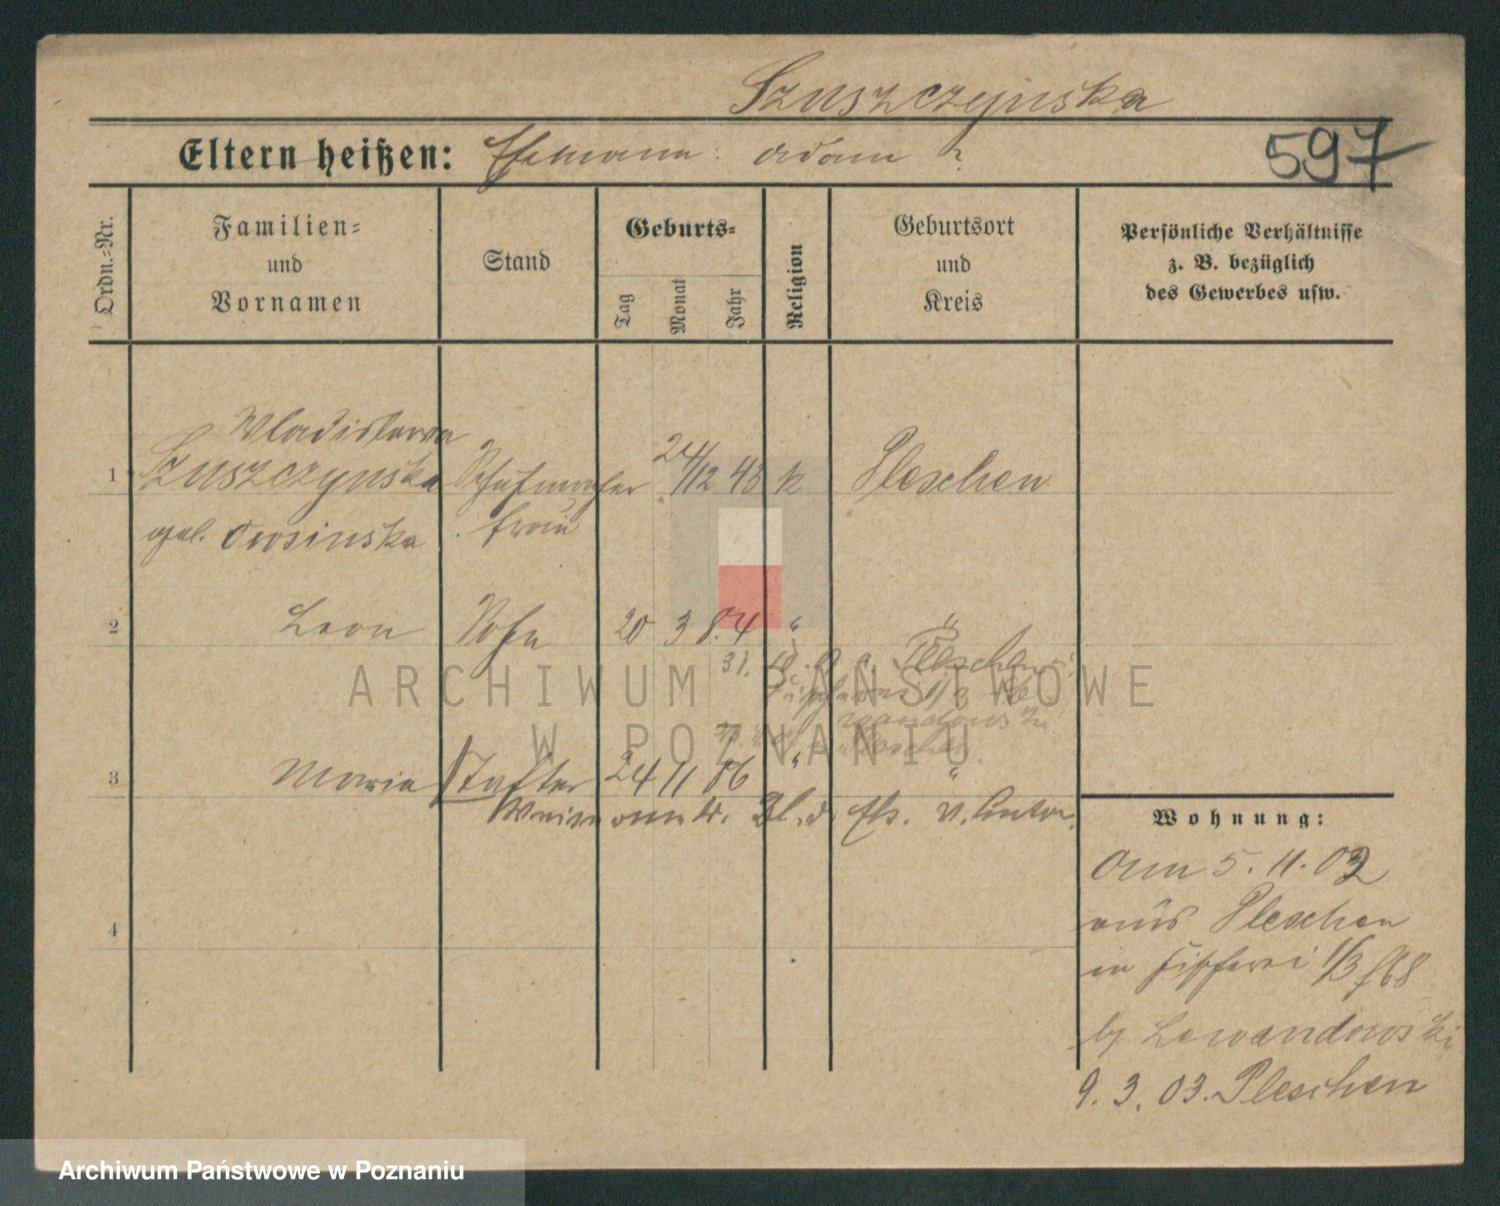 Szuszczyńska
Eltern heißen: Ehemann: Adam ?
597
Ordn.-Nr.
Familien- und Vornamen
Stand
Geburts-
Tag
Monat
Jahr
Religion
Geburtsort und Kreis
Persönliche Verhältnisse
z. B. bezüglich
des Gewerbes usw.
Wladislawa
1 Szuszczynska 24/12 48 k Pleschen
geb. Owsinska frau
2 Leon Sohn 20 3 84 " "
31. Pleschen
3 Maria Tochter 24 11 86 " "
Wohnung:
Am 5. 11. 02
aus Pleschen
in Fischerei 1/3
by Lewandowski
9. 3. 03. Pleschen
ARCHIWUM PAŃSTWOWE
W POZNANIU
4
Archiwum Państwowe w Poznaniu